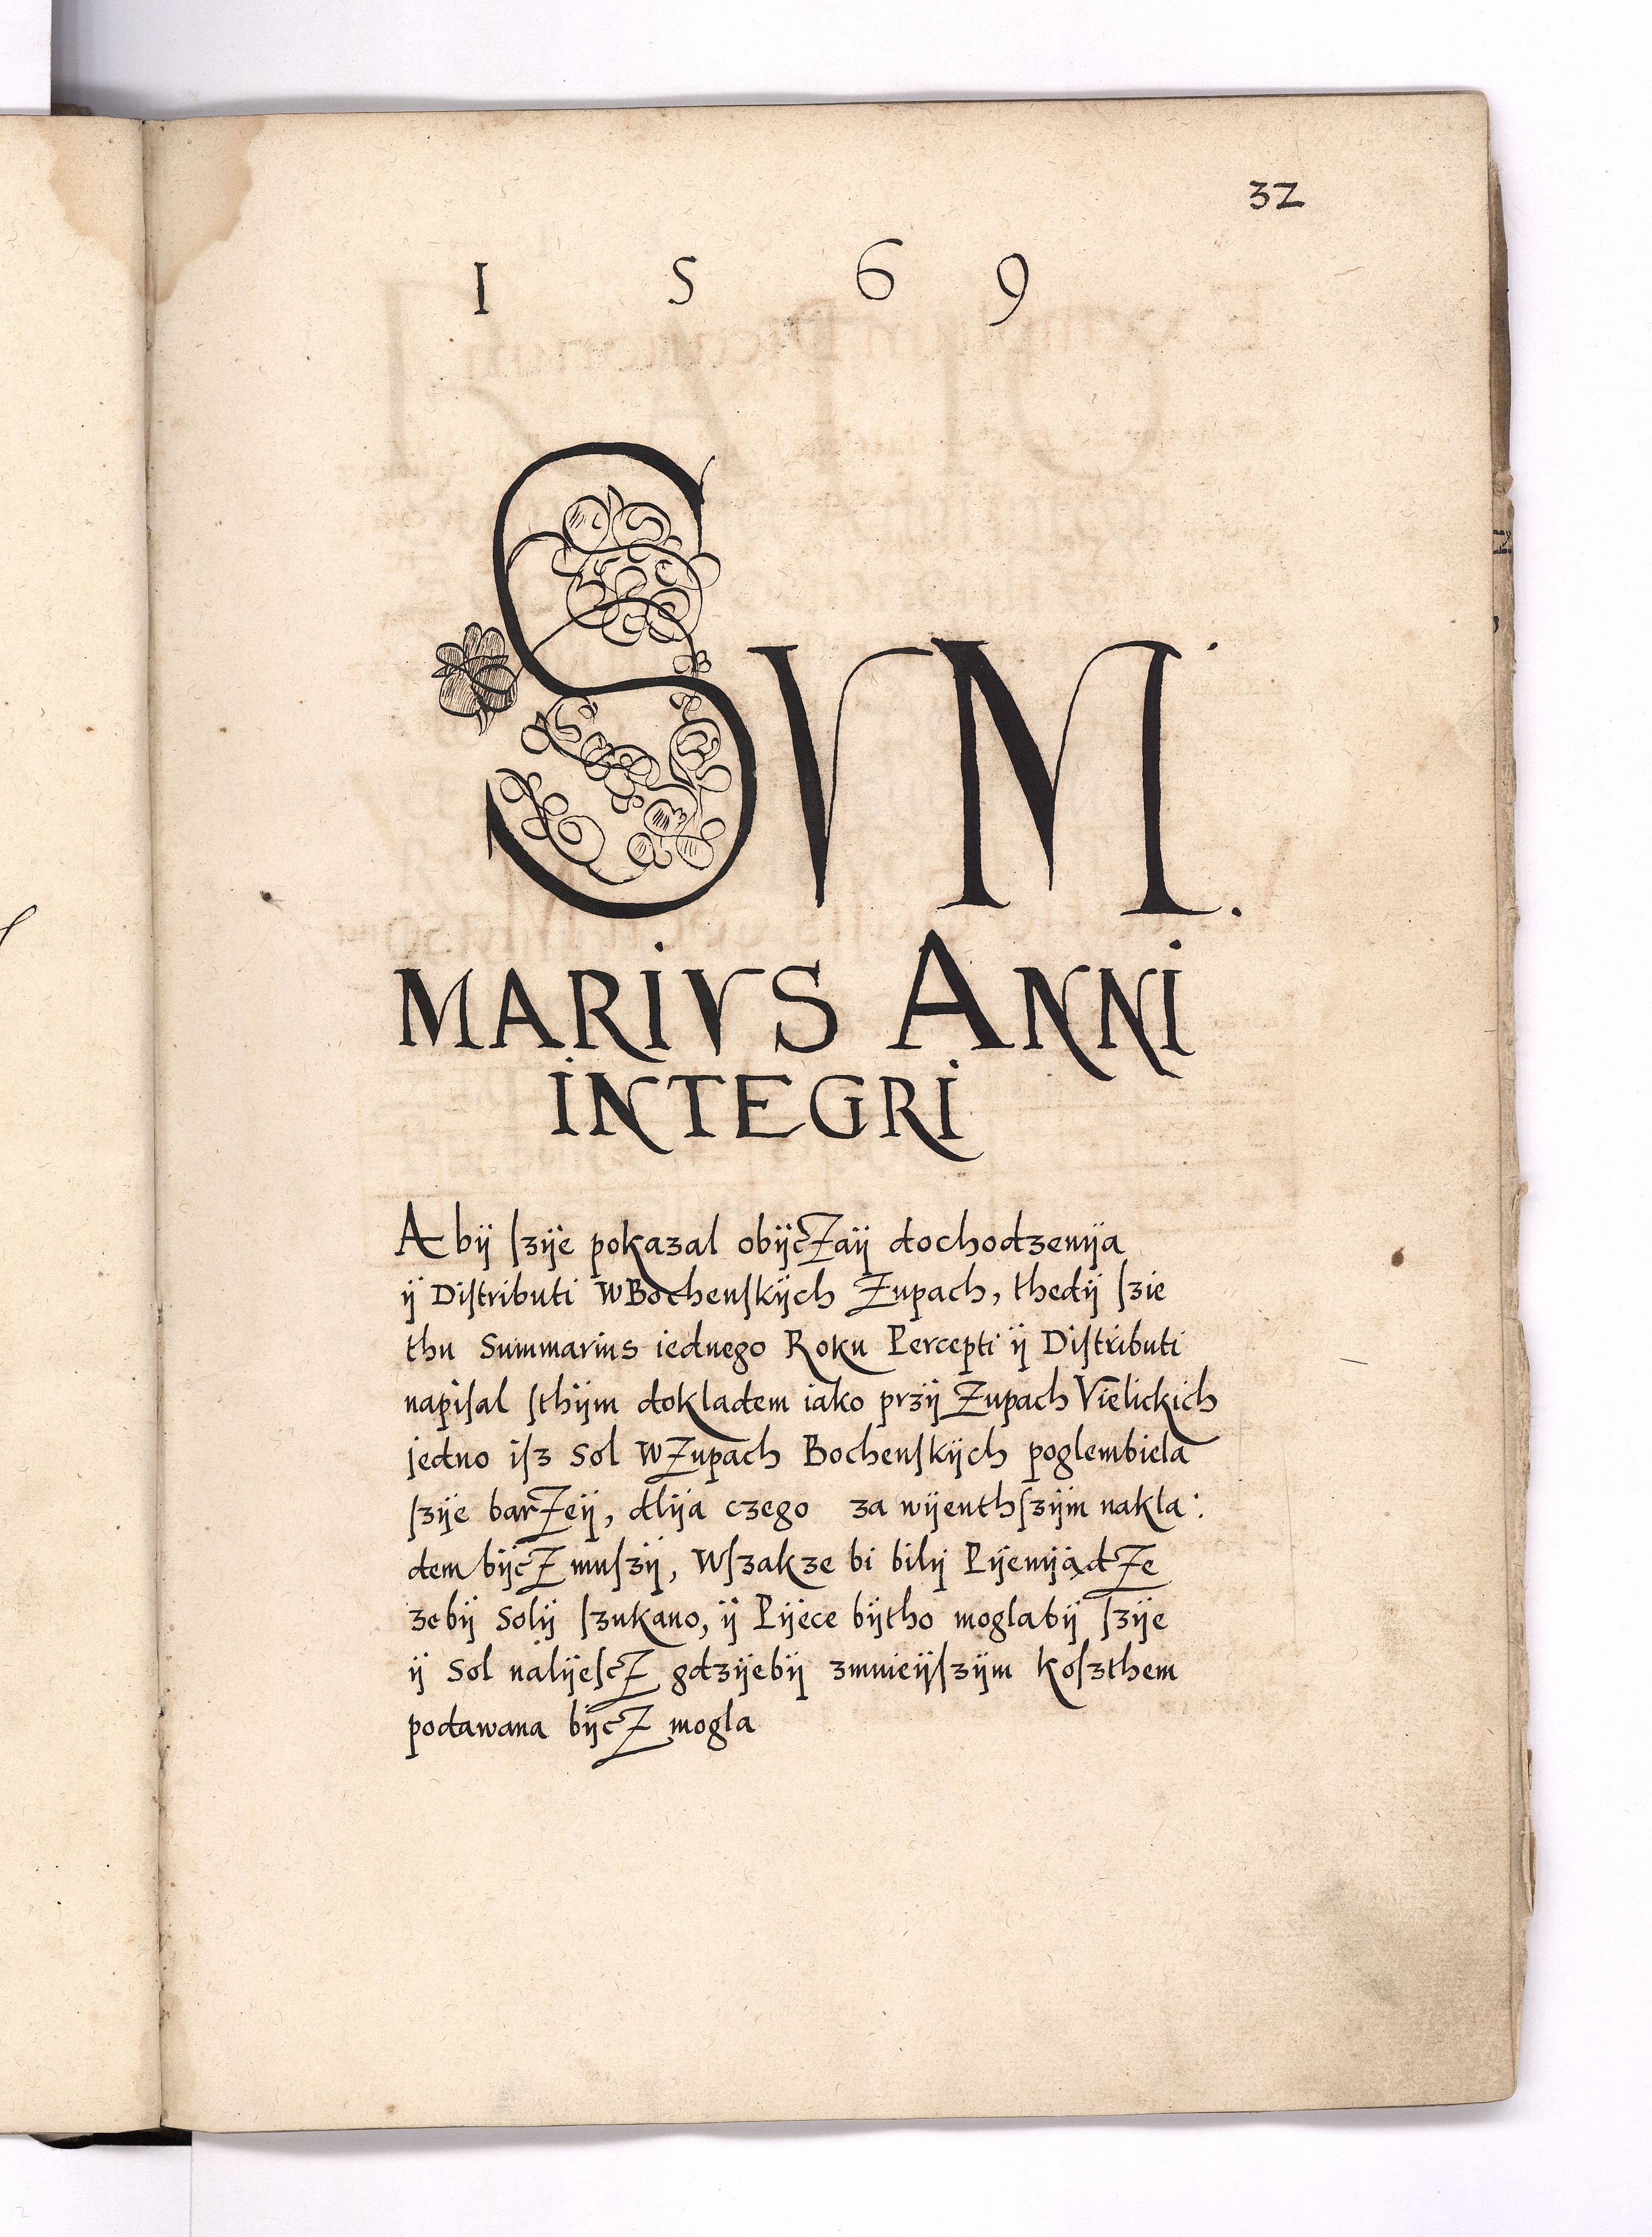 32
1 5 6 9
SVM.
MARIVS ANNI
INTEGRI
Abÿ ſzÿe pokazal obÿcZaÿ dochodzenÿa
ÿ Diſtributi WBochenſkÿch Zupach, thedÿ ſzie
thu Summarius iednego Roku Percepti ÿ Diſtributi
napiſal ſthÿm dokladem iako przÿ Zupach Vielickich
jedno iſz Sol WZupach Bochenſkÿch poglembiela
ſzÿe barZeÿ, dlÿa czego za wÿenthſzÿm nakla:
dem bÿcZ muſzÿ, Wſzakze bi bilÿ PÿenÿądZe
zebÿ Solÿ ſzukano, ÿ Pÿece bÿtho moglabÿ ſzÿe
ÿ Sol nalÿeſcZ gdzÿebÿ zmnieÿſzÿm Koſzthem
podawana bÿcZ mogla